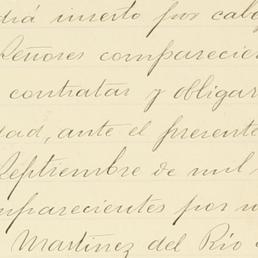 drá inserto por cabe
Señores comparecie
contratar y obligar
dad, ante el presente
Septiembre de mil
mparecientes por m
Martínez del Río